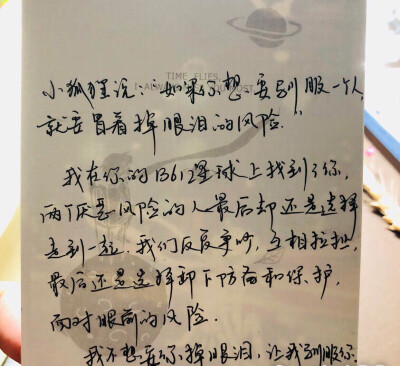 TIME FLIES
小狐狸说:“如果你想要驯服一个人,
就要冒着掉眼泪的风险。”
我在你的B612星球上找到了你,
两个厌恶风险的人最后却还是选择
走到一起。我们反复争吵,互相拉扯,
最后还是选择卸下防备和保护,
面对眼前的风险.
我不想要你掉眼泪,让我驯服你